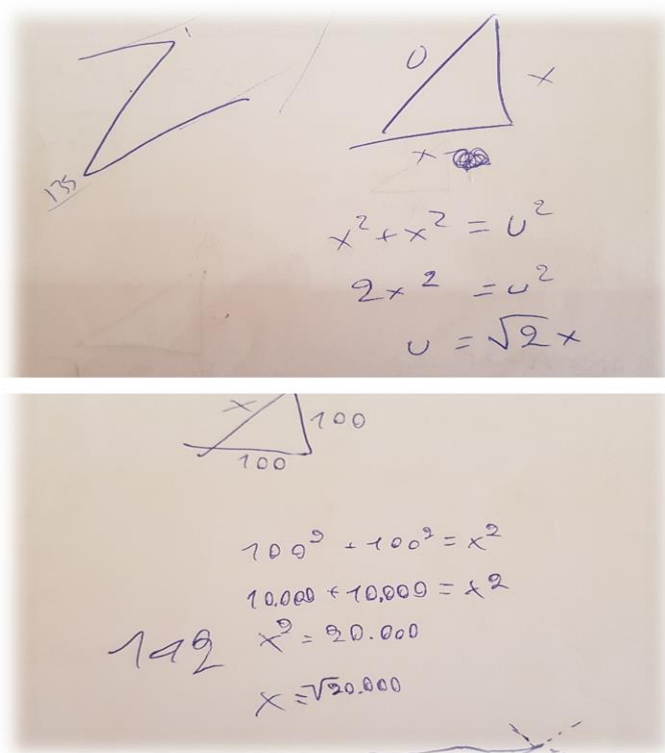 135
U
x
x
x² + x² = U²
2x² = U²
U = √2 x
x
100
100
100² + 100² = x²
10.000 + 10.000 = x²
x² = 20.000
142
x = √20.000